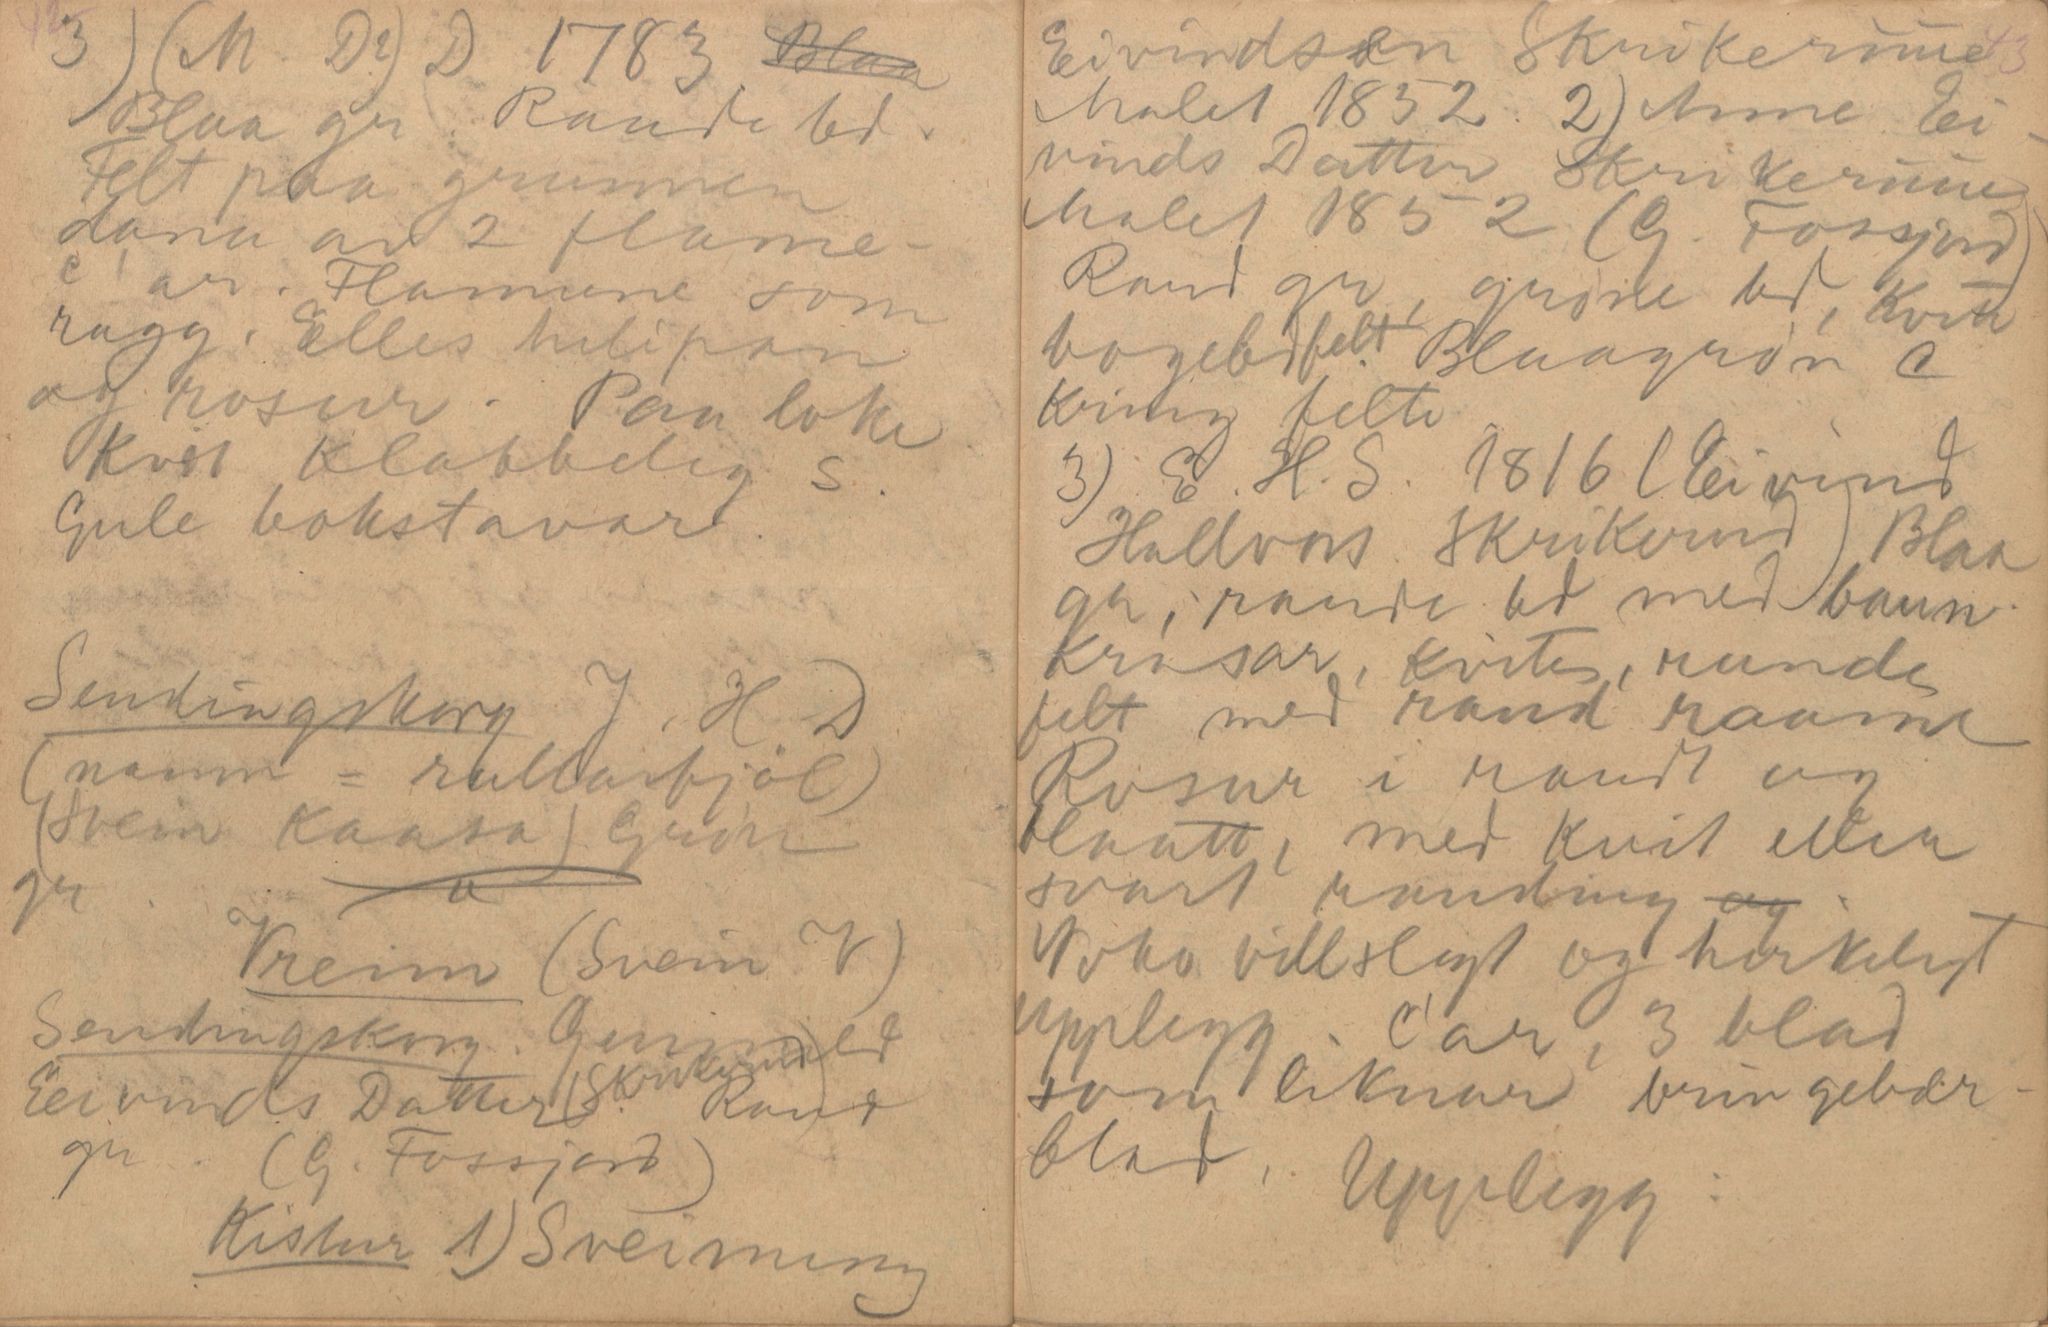 42
3) (M. D?) D 1783 Blaa
Blaa gr. Raude bd.
Felt paa grunnen
dana av 2 flame-
C'ar. Flamune som
rugg. Elles tulipan
og rosur. Paa loke
Kvit Klabbeleg S.
Gule bokstavar.
Sendingskorg J. H. D
(namn = rullarfjöl)
(Svein Kaasa) Grön
gr.
Vreim (Svein V)
Sendingskorg. Gunnild
Eivinds Datter S. (Skrikerud) Raud
gr. (G. Fossjord)
Kistur 1) Sveinung
43
Eivindsen Skrikerune
Malet 1852. 2) Anne Ei-
vinds Datter Skrikerune
Malet 1852 (G. Fossjord)
Raud gr, gröne bd, Kvite
bogebdfelt. Blaagrön C
Kring felti
3) E. H. S. 1816 (Eivind
Hallvors Skrikerud) Blaa
gr, raude bd med baun
Krusar, kvite, runde
felt med raud raame
Rosur i raudt og
blaatt, med kvit eller
svart randing og.
Noko villslegt og herkelegt
upplegg. C'ar, 3 blad
som liknar bringebær-
blad. Upplegg: